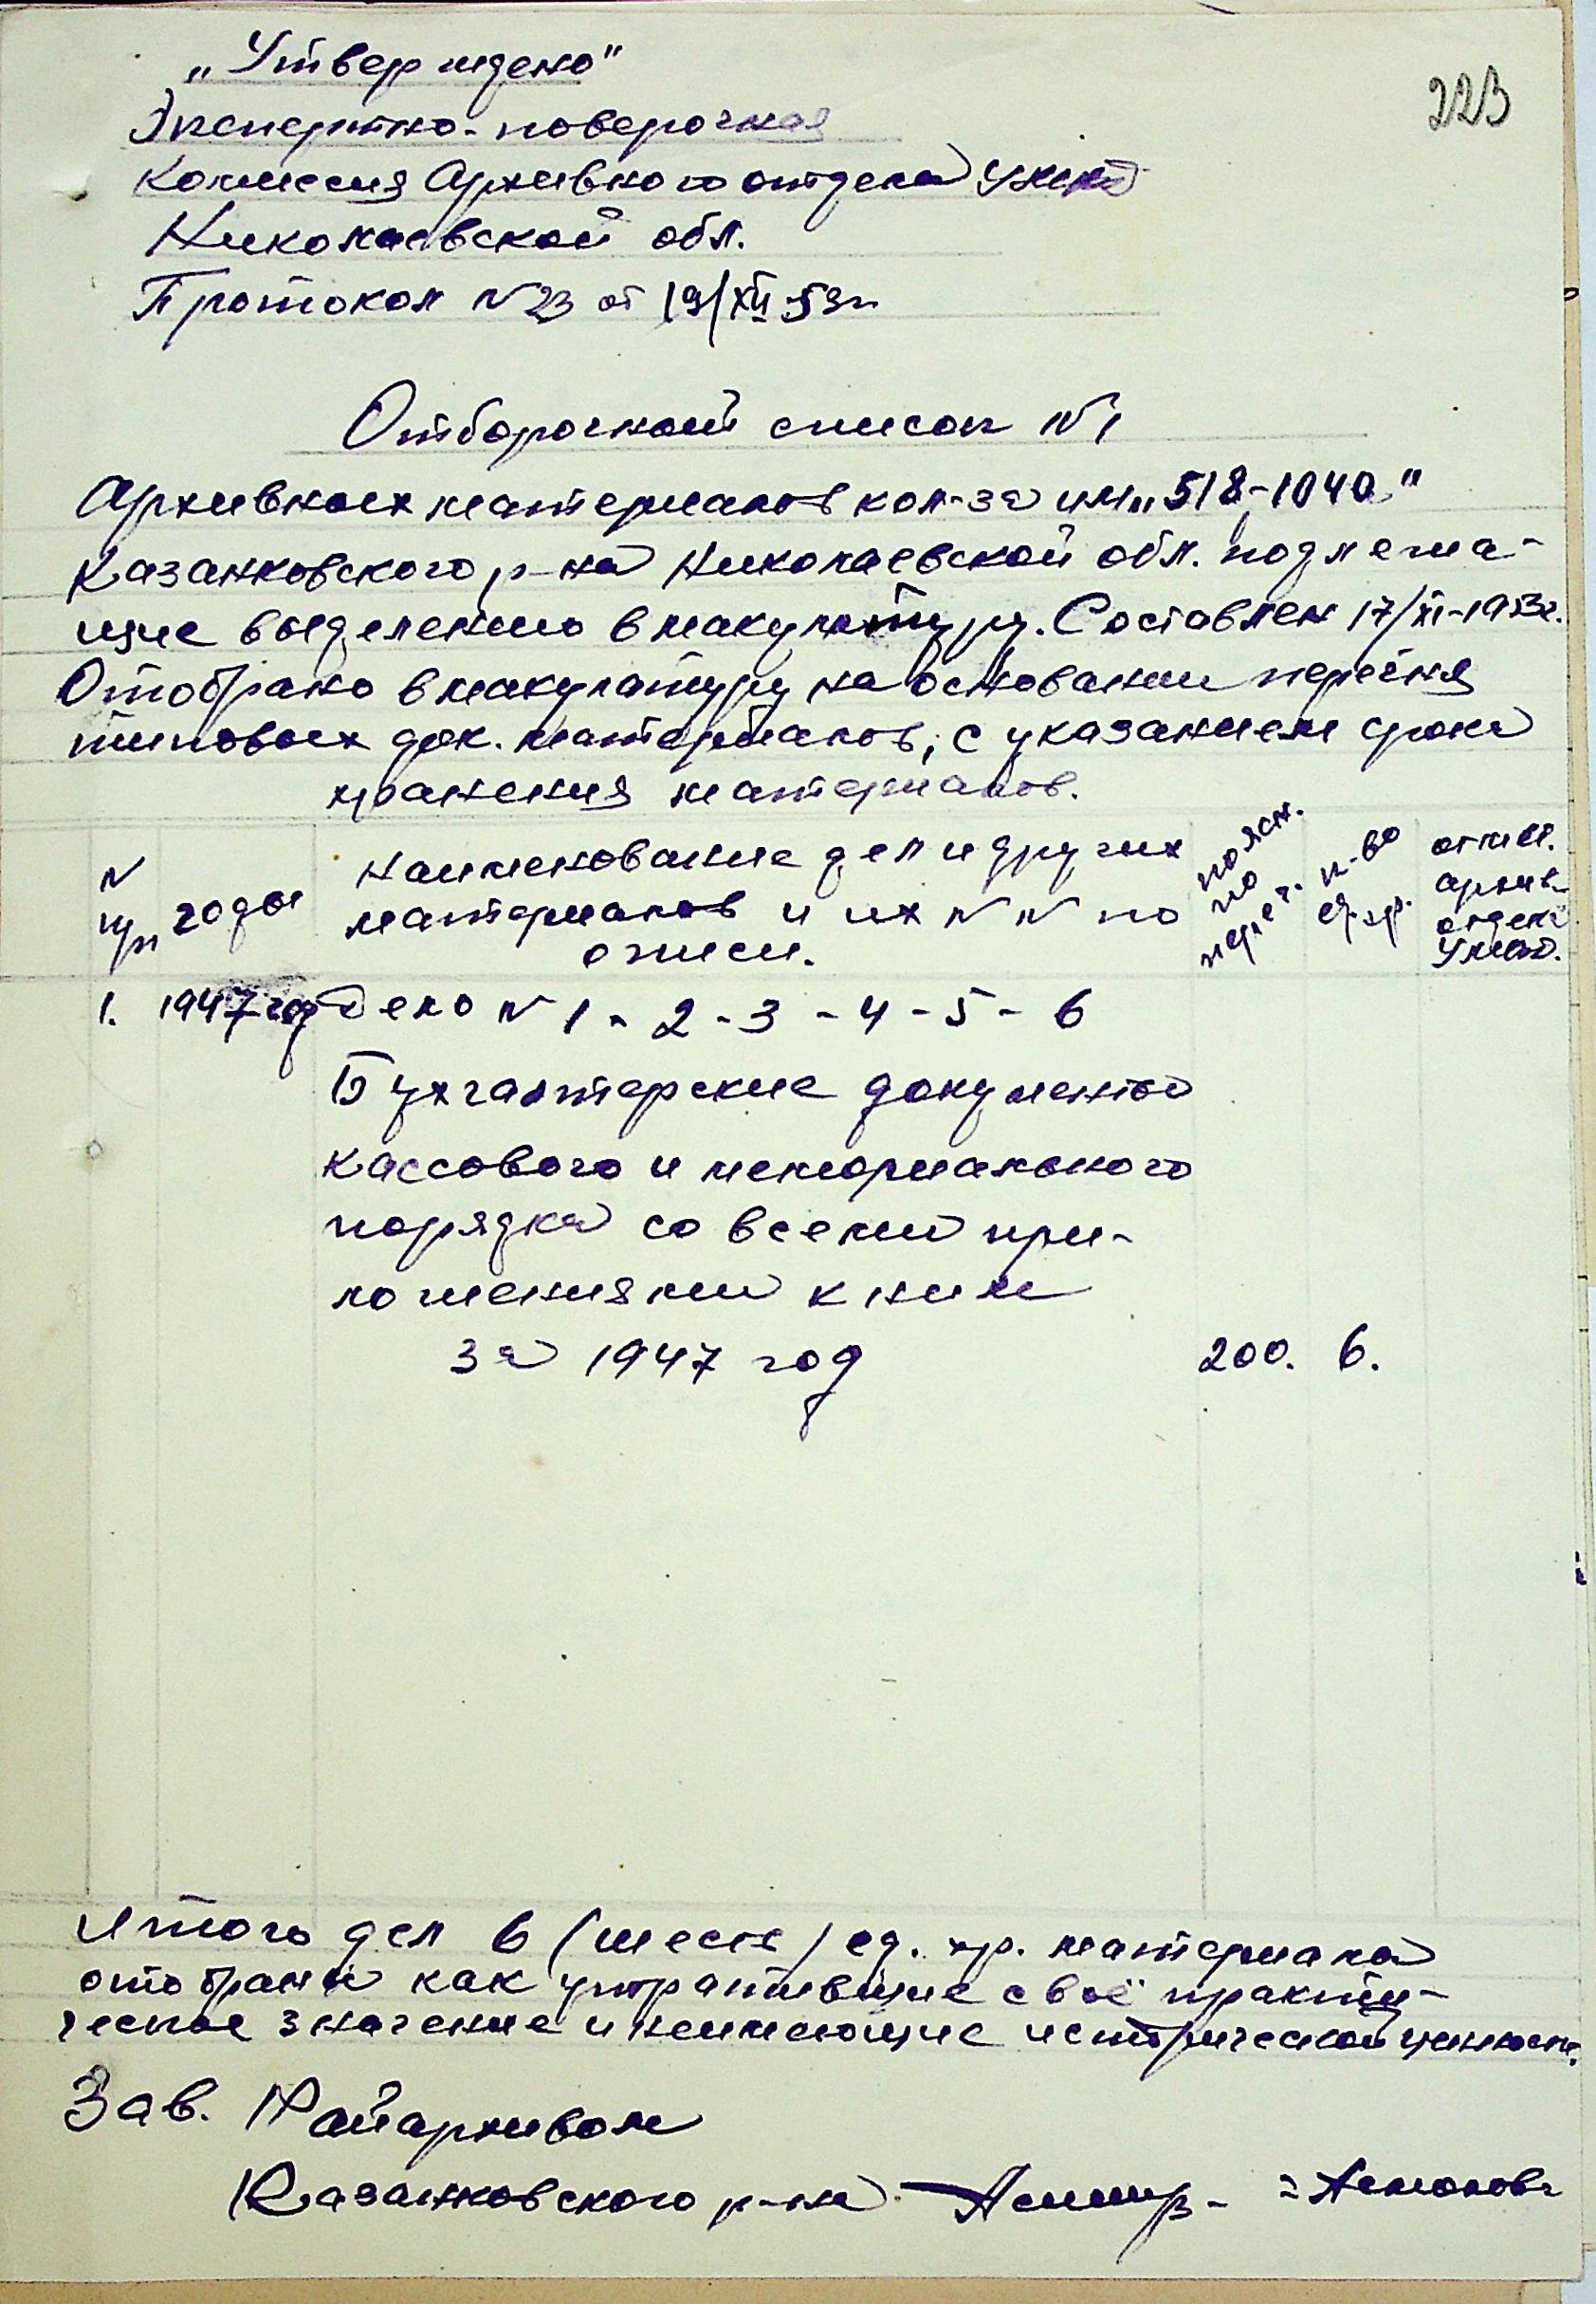 „Утверждено"
223
Экспертно-поверочная
комиссия Архивного отдела УМВД
Николаевской обл.
Протокол N 23 от 19/XII 53г.
Отборочный список N 1
Архивных материалов кол-за им „518-1040"
Казанковского р-на Николаевской обл. подлежа-
щие выделению в макулатуру. Составлен 17/XI-1953г.
Отобрано в макулатуру на основании перечня
типовых док. материалов, с указанием срока
хранения материалов.
N п/п | годы | Наименование дел и других материалов и их N N по описи. | по | к-во ед. хр. | отмет. архив. отдела УМВД.
1. 1947 год Дело N 1 - 2 - 3 - 4 - 5 - 6
Бухгалтерские документы
кассового и мемориального
порядка со всеми при-
ложениями к ним
за 1947 год 200. 6.
Итого дел 6 (шесть) ед. хр. материала
отобраны как утратившие своё практи-
ческое значение и неимеющие исторической ценности.
Зав. Райархивом
Казанковского р-на